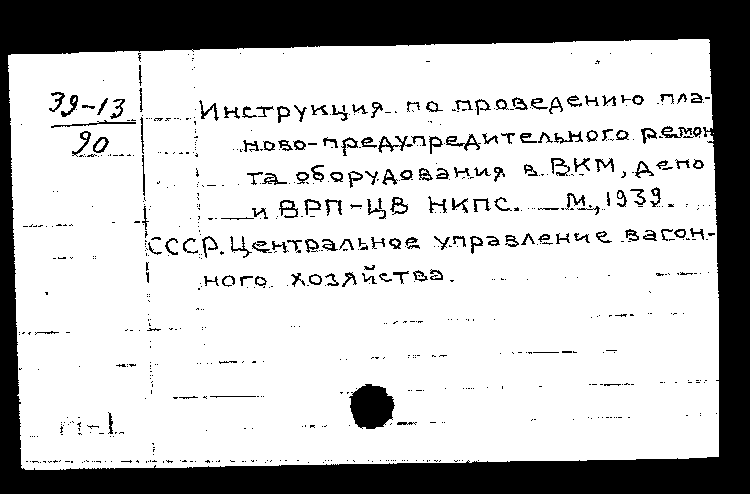 39-13
90
Инструкция по проведению пла-
ново-предупредительного ремон
та оборудования в ВКМ, депо
и ВРП-ЦВ НКПС. М., 1939.
СССР. Центральное управление вагон-
ного хозяйства.